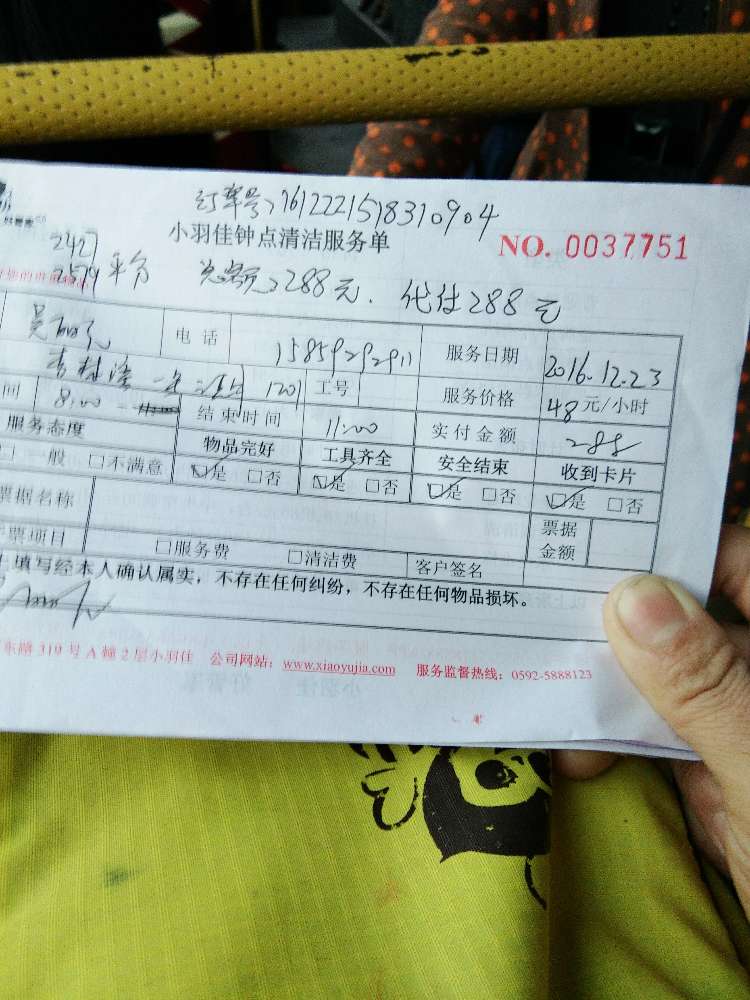 订单号:1612221518310904
小羽佳钟点清洁服务单
NO. 0037751
平台 总额:288元. 代付288元
电话 15859292911 服务日期 2016.12.23
1201 工号 服务价格 48元/小时
间 8:00 结束时间 11:00 实付金额 288
服务态度 物品完好 工具齐全 安全结束 收到卡片
般 □不满意 □是 □否 □是 □否 □是 □否 □是 □否
票据名称 票据金额
票项目 □服务费 □清洁费 客户签名
填写经本人确认属实，不存在任何纠纷，不存在任何物品损坏。
东路319号A幢2层小羽佳 公司网站：www.xiaoyujia.com 服务监督热线：0592-5888123